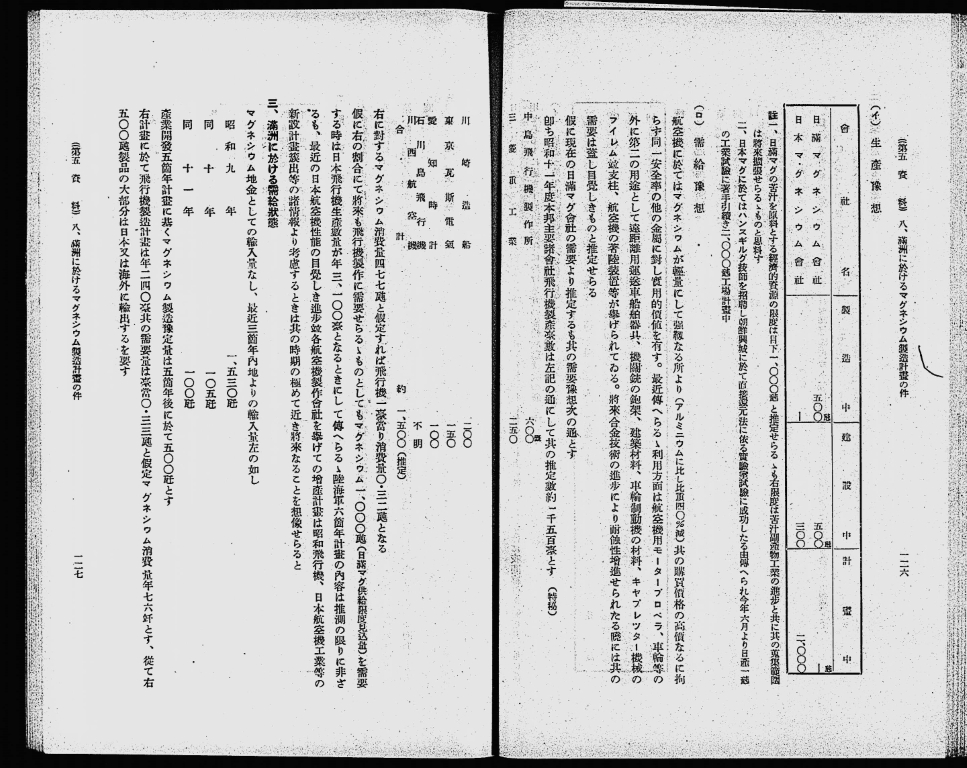 （第五　資　料）八、滿洲に於けるマグネシウム製造計畫の件
一二六
（イ）生產豫想
會社名　製造中　建設中　計畫中
日滿マグネシウム會社　五〇〇瓲　五〇〇瓲　｜瓲
日本マグネシウム會社　｜　三〇〇　二、〇〇〇
註一、日滿マグの苦汁を原料とする經濟的資源の限度は目下一、〇〇〇瓲と推定せらるゝも右限度は苦汁副產物工業の進步と共に其の蒐集範圍
は將來擴張せらるゝものと思料す
二、日本マグに於てはハンスギルグ技師を招聘し朝鮮興城に於て直接還元法に依る實驗室試驗に成功したる由傳へられ今年六月より日產一瓲
の工業試驗に著手引續き二、〇〇〇瓲工場計畫中
（ロ）需給豫想
航空機に於てはマグネシウムが輕量にして强靱なる所より（アルミニウムに比し比重四〇％減）其の購買價格の高價なるに拘
らず同一安全率の他の金屬に對し實用的價値を有す。最近傳へらるゝ利用方面は航空機用モータープロペラ、車輪等の
外に第二の用途として遠距離用運送車船舶器具、機關銃の銃架、建築材料、車輪制動機の材料、キャブレツター機械の
フイレム或支柱、航空機の著陸裝置等が擧げられてゐる。將來合金技術の進步により耐蝕性增進せられたる曉には其の
需要は蓋し目覺しきものと推定せらる
假に現在の日滿マグ會社の需要より推定するも其の需要豫想次の通とす
卽ち昭和十一年度本邦主要諸會社飛行機製產臺數は左記の通にして其の推定數約一千五百臺とす（特秘）
中島飛行機製作所　六〇〇臺
三菱重工業　二五〇
川崎造船　二〇〇
東京瓦斯電氣　一五〇
愛知時計　一〇〇
石川島飛行機　不明
川西航空機
合計　約　一、五〇〇（推定）
右に對するマグネシウム消費量四七七瓲と假定すれば飛行機一臺當り消費量〇・三二瓲となる
假に右の割合にて將來も飛行機製作に需要せらるゝものとしてもマグネシウム一、〇〇〇瓲（日滿マグ供給限度見込量）を需要
する時は日本飛行機生產數量が年三、一〇〇臺となるときにして傳へらるゝ陸海軍六箇年計畫の內容は推測の限りに非ざ
るも、最近の日本航空機性能の目覺しき進步竝各航空機製作會社を擧げての增產計畫は昭和飛行機、日本航空機工業等の
新設計畫簇出等の諸情報より考慮するときは其の時期の極めて近き將來なることを想像せらると
三、滿洲に於ける需給狀態
マグネシウム地金としての輸入量なし、最近三箇年內地よりの輸入量左の如し
昭和九年　一、五三〇瓩
同十年　一〇五瓩
同十一年　一〇〇瓩
產業開發五箇年計畫に基くマグネシウム製造豫定量は五箇年後に於て五〇〇瓩とす
右計畫に於て飛行機製造計畫は年二四〇臺其の需要量は臺當〇・三二瓲と假定マグネシウム消費量年七六瓩とす、從て右
五〇〇瓲製品の大部分は日本又は海外に輸出するを要す
（第五　資　料）八、滿洲に於けるマグネシウム製造計畫の件
一二七